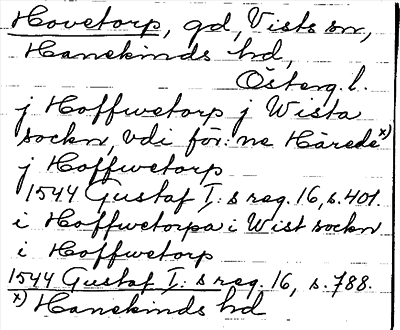 Hovetorp, gd, Vists sn,
Hanekinds hd,
Österg. l.
j Hoffwetorp j Wista
sockn, vdi för: ne Härede x)
j Hoffwetorp
1544 Gustaf I: s reg. 16, s. 401.
i Hoffwetorpa i Wist sockn
i Hoffwetorp
1544 Gustaf I: s reg. 16, s. 788.
x) Hanekinds hd